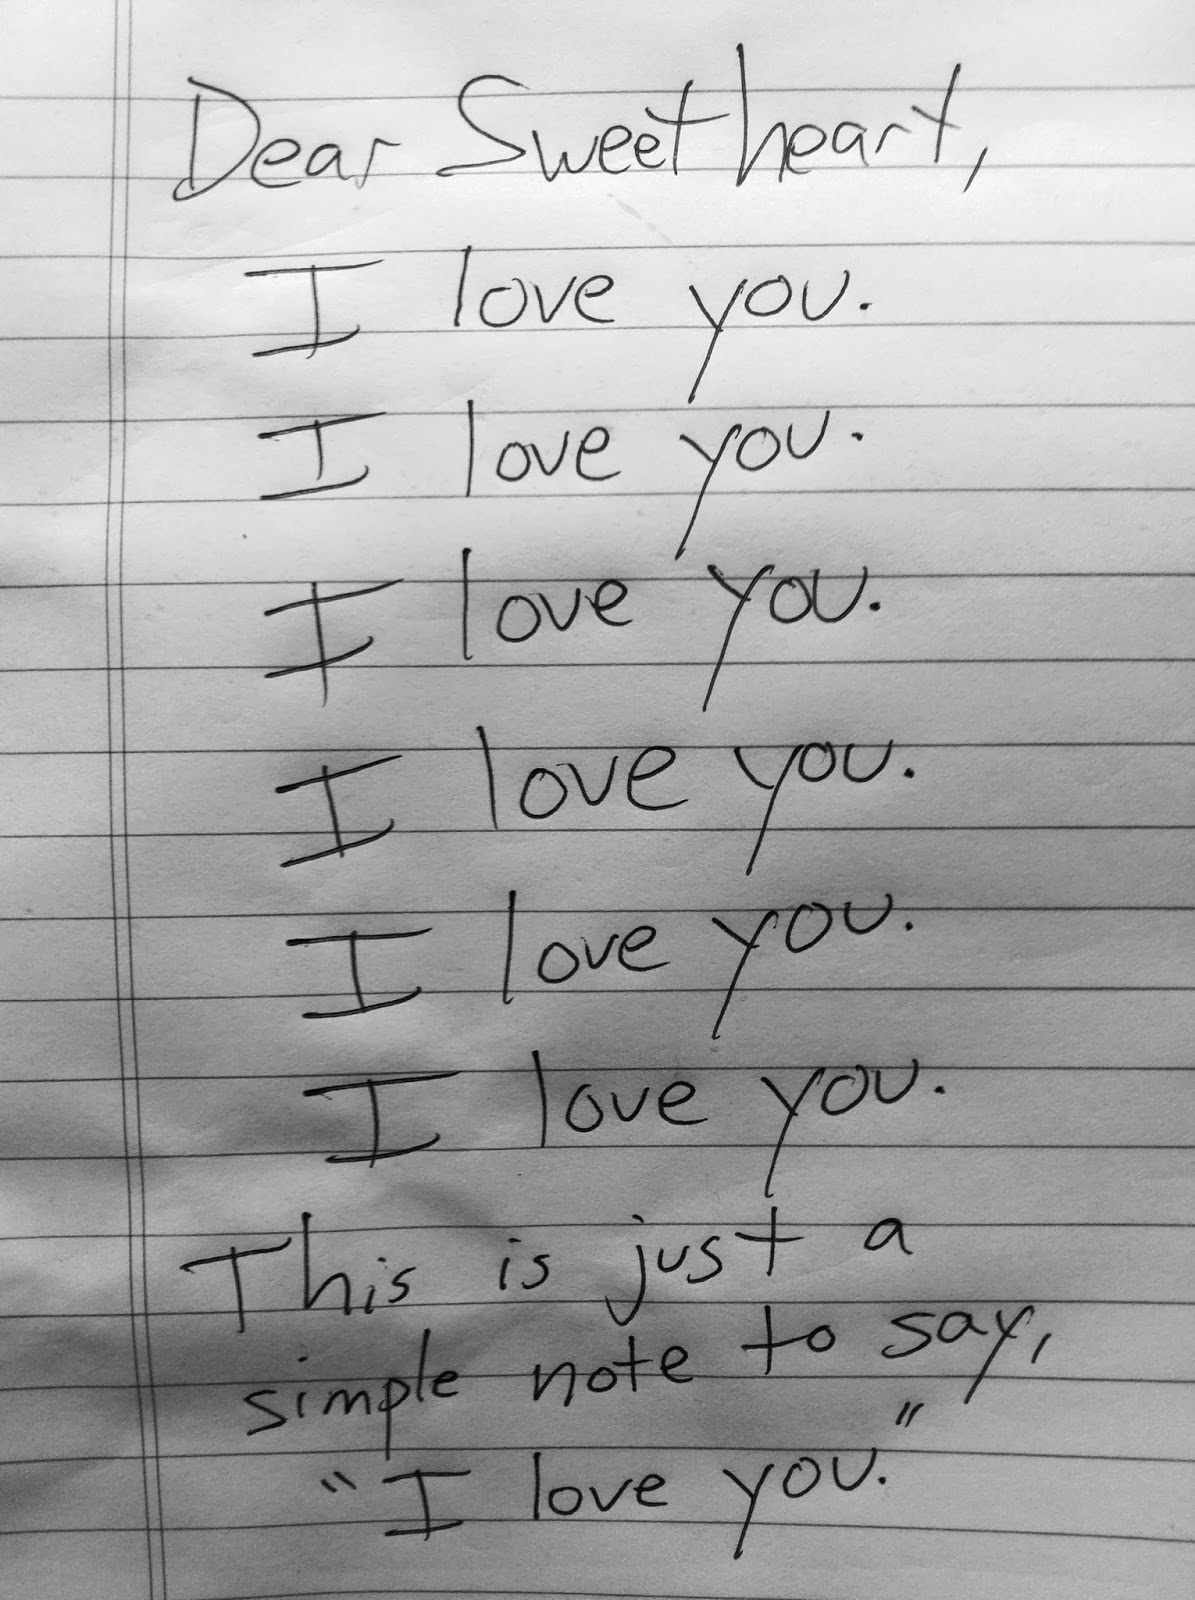 Dear Sweetheart,
I love you.
I love you.
I love you.
I love you.
I love you.
I love you.
This is just a
simple note to say,
"I love you."